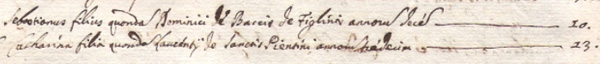 Sebastianus filius quondam Dominici de Bareis de Figlinis annorum decem 10.
Catharina filia quondam Laurentij de Sanctis Pientini annorum tredecim 13.